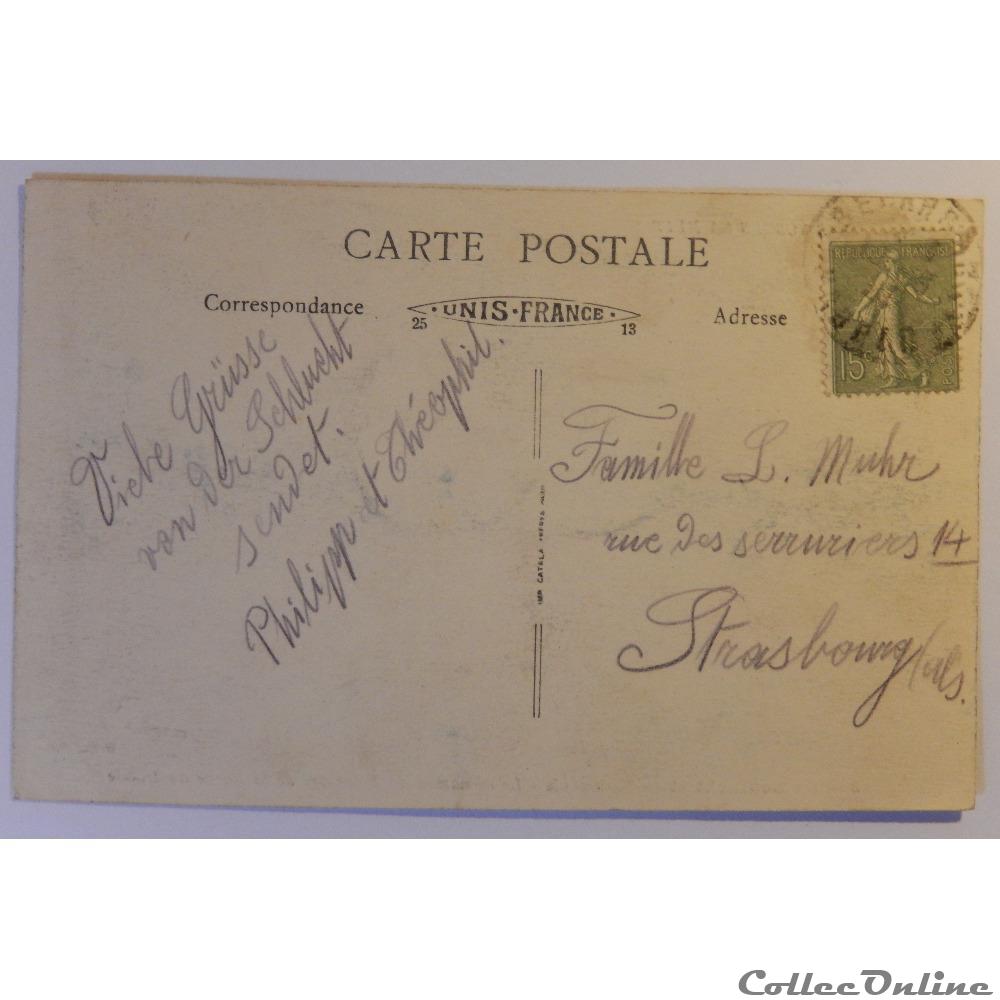 CARTE POSTALE
Correspondance
·UNIS·FRANCE·
25 13
Adresse
RÉPUBLIQUE FRANÇAISE
15c
POSTES
Viele Grüsse
von der Schlucht
sendet.
Philipp et Théophil.
Famille L. Muhr
rue des serruriers 14
Strasbourg/als.
IMP. CATALA FRÈRES PARIS
CollecOnline